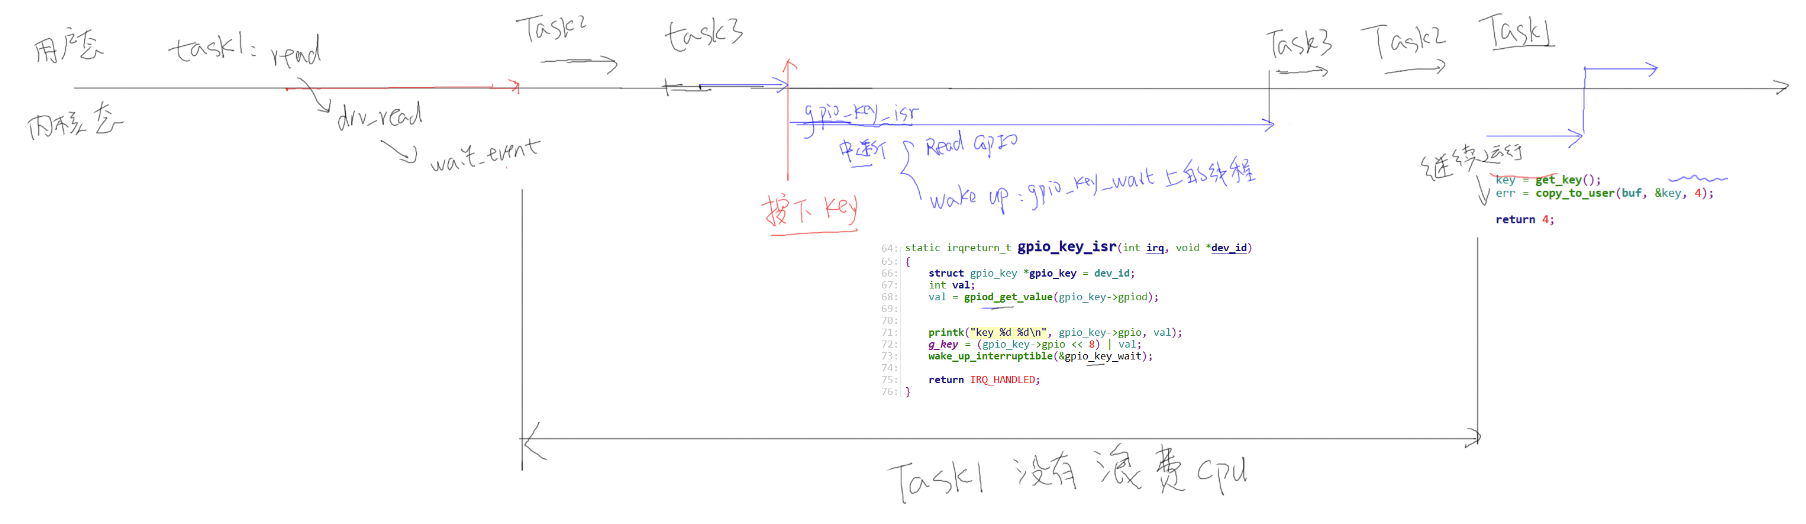 用户态
task1: read
Task2
task3
Task3
Task2
Task1
内核态
drv_read
wait_event
gpio_key_isr
中断
Read GPIO
wake up : gpio_key_wait 上的线程
按下 key
继续运行
key = get_key();
err = copy_to_user(buf, &key, 4);
return 4;
64: static irqreturn_t gpio_key_isr(int irq, void *dev_id)
65: {
66: struct gpio_key *gpio_key = dev_id;
67: int val;
68: val = gpiod_get_value(gpio_key->gpiod);
69:
70:
71: printk("key %d %d\n", gpio_key->gpio, val);
72: g_key = (gpio_key->gpio << 8) | val;
73: wake_up_interruptible(&gpio_key_wait);
74:
75: return IRQ_HANDLED;
76: }
Task1 没有浪费cpu